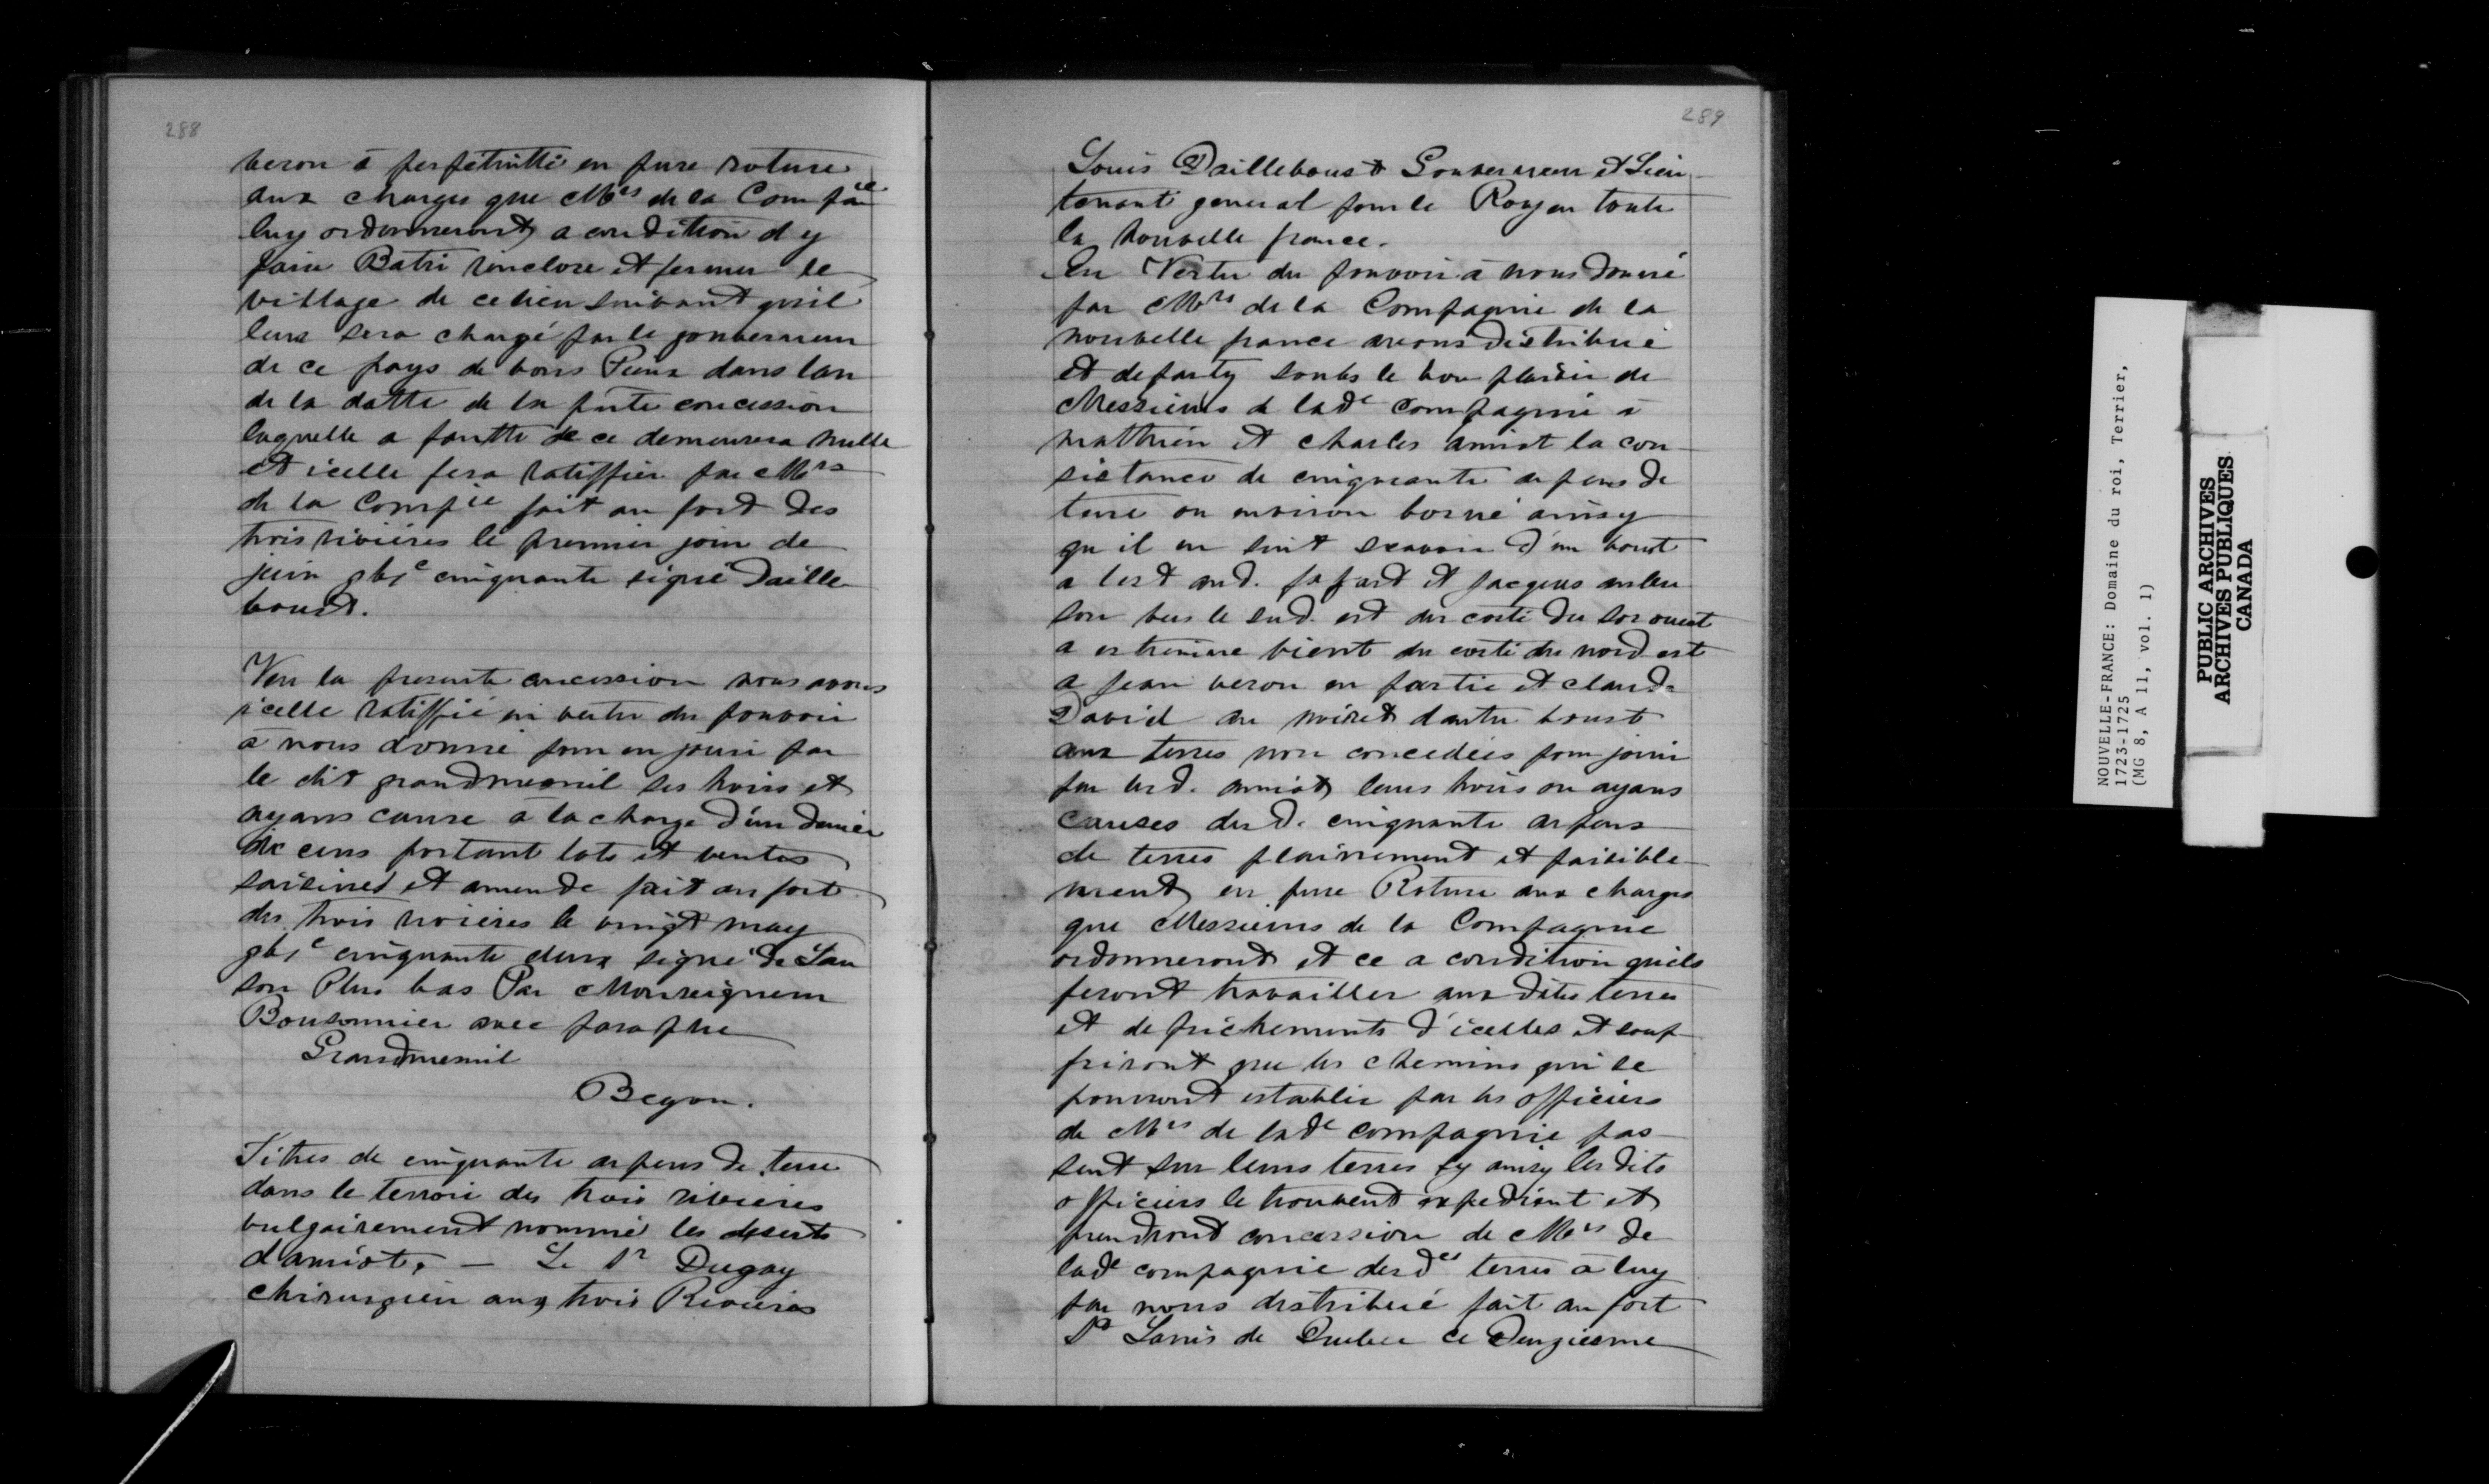 288
veron à perpétuitté en pure roture
aux charges que Mrs de la Compaie
luy ordonneront a condition d y
faire Batri renclore et fermer le
village de ce lieu suivant quil
leur sera chargé par le gouverneur
de ce pays de bons Pieux dans lan
de la datte de la pnte concession
laquelle a fautte de ce demeurera nulle
et icelle fera ratiffier par Mrs
de la Compie fait au fort des
trois rivieres le premier jour de
juin gbic cinquante signé Daille
boust.
Veu la presente concession nous avons
icelle ratiffié en vertu du pouvoir
à nous donné pour en jouir par
le dit grandmesnil ses hoirs et
ayans cause à la charge d'un denier
de cens portant lots et ventes
saisines et amende fait au fort
des trois rivieres le vingt may
gbic cinquante deux signé de Lau
son Plus bas Par Monseigneur
Bousonnier avec paraphe
Grandmesnil
Begon.
Titres de cinquante arpens de terre
dans le terroir des trois rivieres
vulgairement nommé les deserts
d'amiot. — Le Sr Dugay
chirurgien aux trois Rivieres
289
Louis Dailleboust Gouverneur et Lieu
tenant general pour le Roy en toute
la nouvelle france.
En Vertu du pouvoir à nous donné
par Mrs de la Compagnie de la
nouvelle france avons distribué
et departy soubs le bon plaisir de
Messieurs de lade compagnie à
matthieu et charles amiot la con-
sistance de cinquante arpens de
terre ou environ borné ainsy
qu il en suit scavoir d'un boust
a les d. fafard et Jacques aubu
son vers le sud est du costé du sorouest
a estienne vient du costé du nord est
a Jean veron en partie et claude
David au noiret dautre boust
aux terres non concedées pour jouir
par les d. amiot leurs hoirs ou ayans
causes des d. cinquante arpens
de terres plainement et paisible-
ment en pure Roture aux charges
que Messieurs de la Compagnie
ordonneront et ce a condition quils
feront travailler aux dites terres
et defrichements d'icelles et souf
friront que les chemins qui se
pourront establir par les officiers
de Mrs de lade compagnie pas-
sent sur leurs terres sy ainsy les dits
officiers le trouvent expedient et
prendront concession de Mrs de
lade compagnie des des terres à luy
par nous distribué fait au fort
St Louis de Quebec ce Douziesme
NOUVELLE-FRANCE: Domaine du roi, Terrier,
1723-1725
(MG 8, A 11, vol. 1)
PUBLIC ARCHIVES
ARCHIVES PUBLIQUES
CANADA